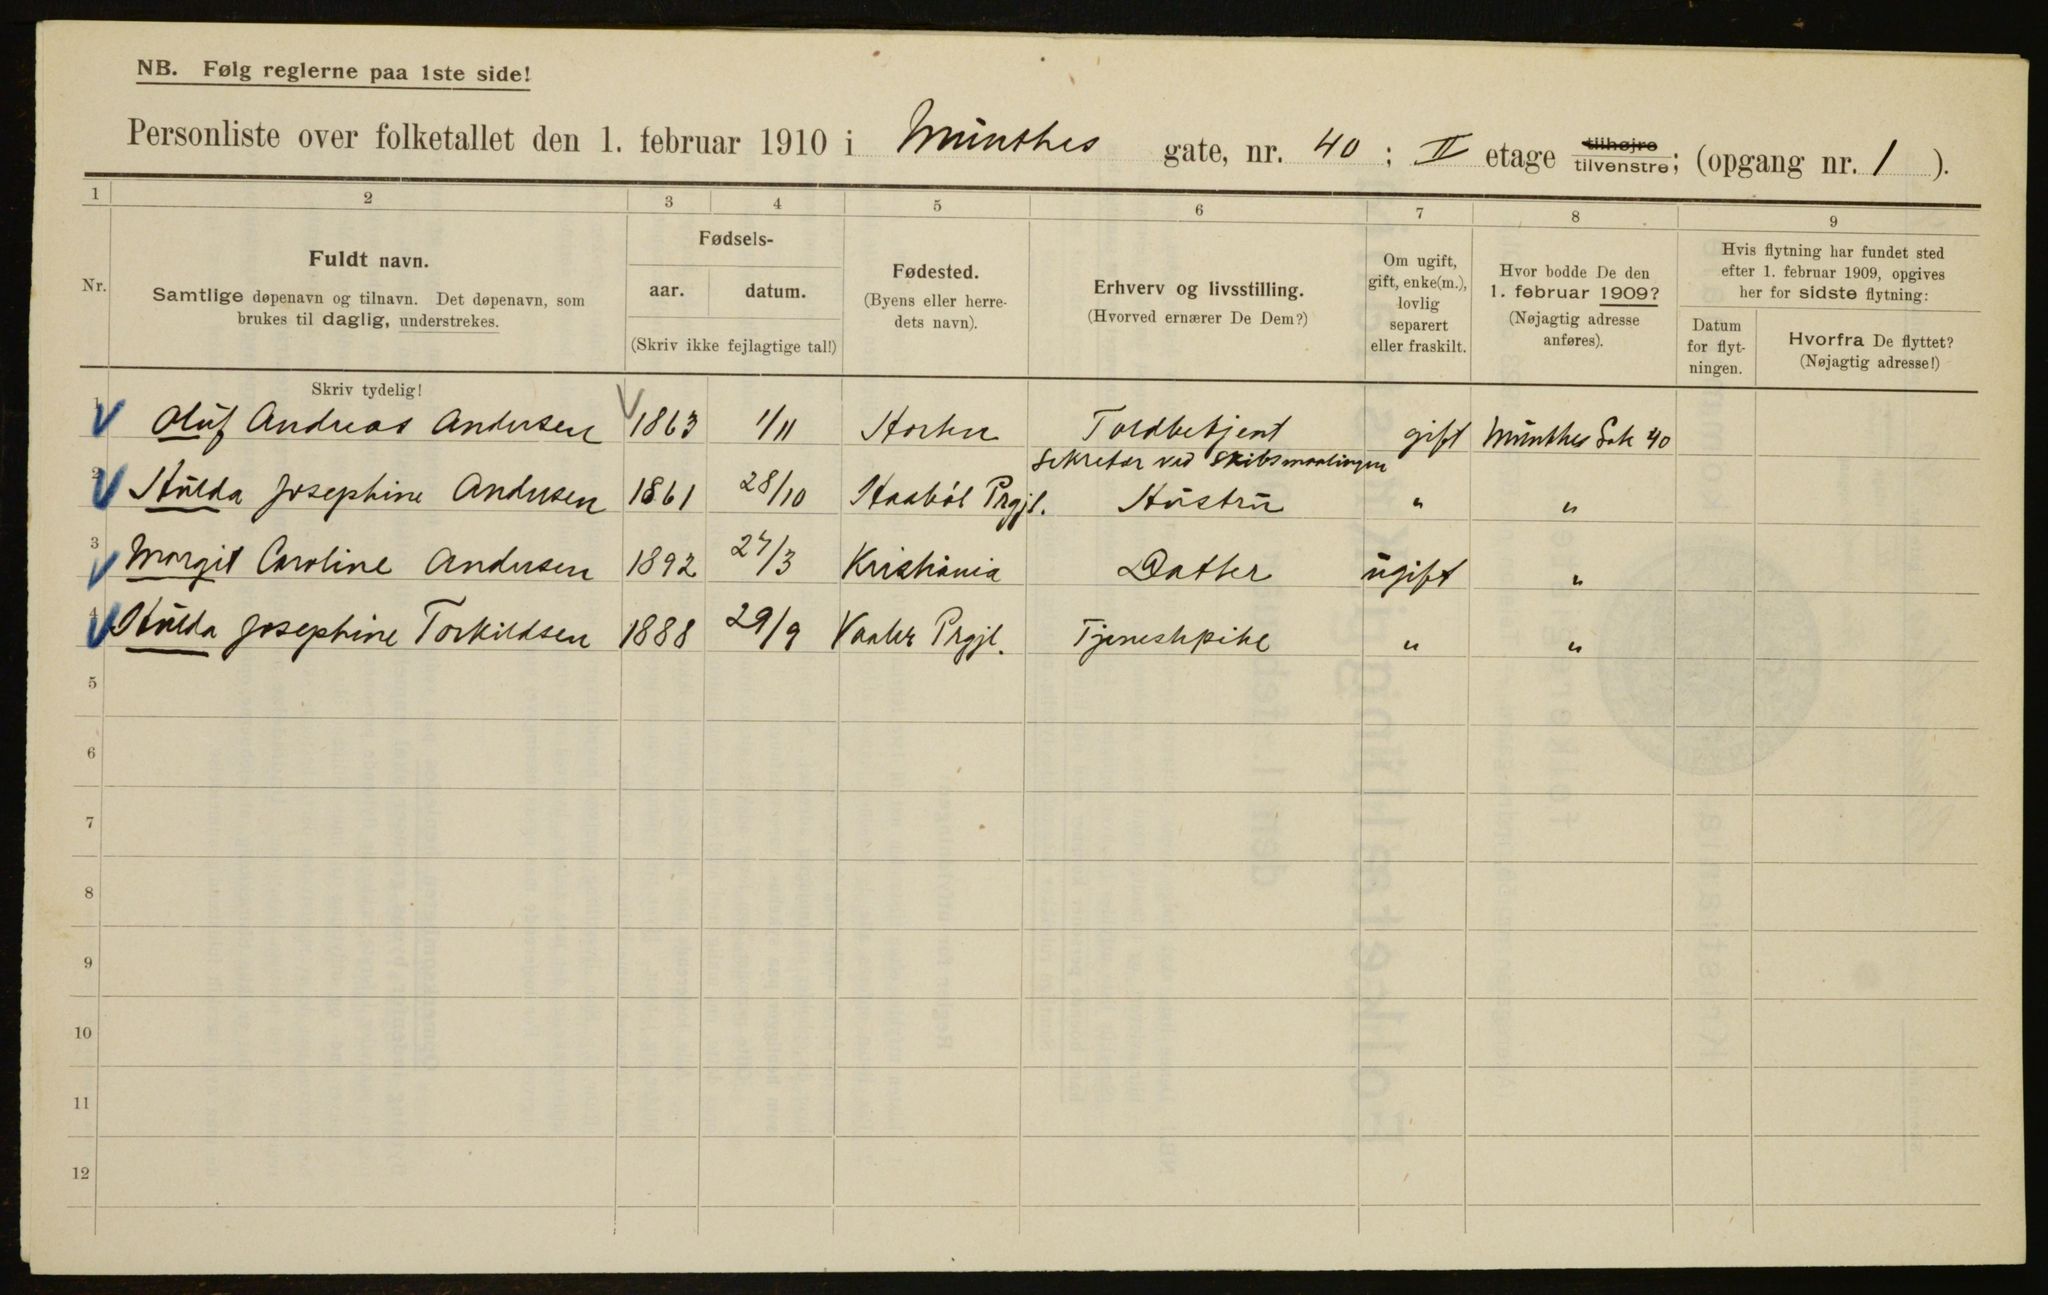 NB. Følg reglerne paa 1ste side!
Personliste over folketallet den 1. februar 1910 i Munthes gate, nr. 40 ; II etage tilhøjre tilvenstre; (opgang nr. 1 ).
1 2 3 4 5 6 7 8 9
Nr.
Fuldt navn.
Samtlige døpenavn og tilnavn. Det døpenavn, som
brukes til daglig, understrekes.
Fødsels-
aar. datum.
(Skriv ikke fejlagtige tal!)
Fødested.
(Byens eller herre-
dets navn).
Erhverv og livsstilling.
(Hvorved ernærer De Dem?)
Om ugift,
gift, enke(m.),
lovlig
separert
eller fraskilt.
Hvor bodde De den
1. februar 1909?
(Nøjagtig adresse
anføres).
Hvis flytning har fundet sted
efter 1. februar 1909, opgives
her for sidste flytning:
Datum
for flyt-
ningen.
Hvorfra De flyttet?
(Nøjagtig adresse!)
Skriv tydelig!
1 Oluf Andreas Andersen 1863 1/11 Horten Toldbetjent gift Munthes Gt 40
Sekretær ved Skibsmaalingen
2 Hulda Josephine Andersen 1861 28/10 Haabøl Prgjl. Hustru " "
3 Margit Caroline Andersen 1892 27/3 Kristiania Datter ugift "
4 Hulda Josephine Torkildsen 1888 29/9 Vaaler Prgjl. Tjenestepike " "
5
6
7
8
9
10
11
12